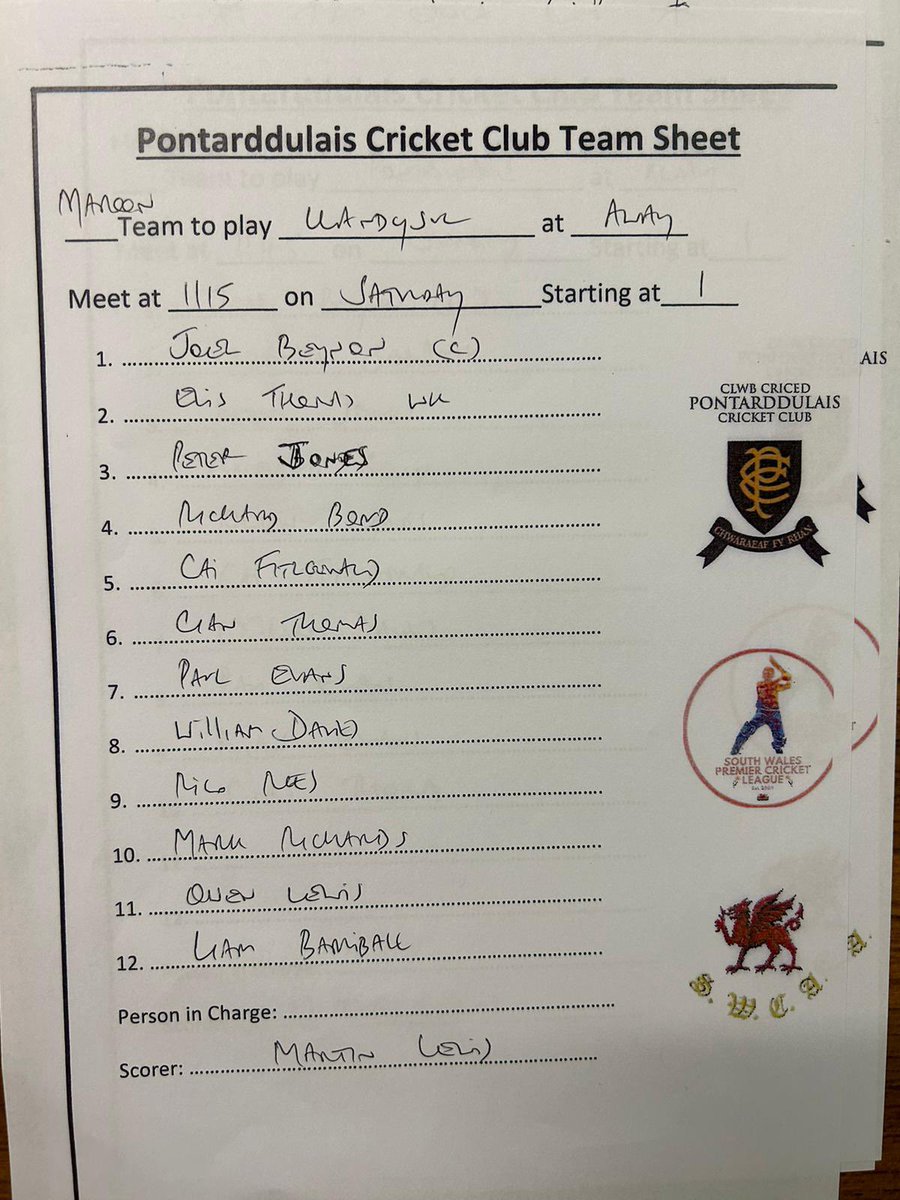 Pontarddulais Cricket Club Team Sheet
MAROON Team to play LLANDYSUL at AWAY
Meet at 11/15 on SATURDAY Starting at 1
1. JOEL BEYNON (C)
2. Elis THOMAS WK
3. PETER JONES
4. RICHARD BOND
5. CAi FITZGERALD
6. CIAN THOMAS
7. PAUL EVANS
8. William DAVIES
9. RICO REES
10. MARK RICHARDS
11. OWEN LEWIS
12. LIAM BARRIBALL
Person in Charge:
Scorer: MARTIN LEWIS
CLWB CRICED
PONTARDDULAIS
CRICKET CLUB
CHWARAEAF FY RHAN
SOUTH WALES
PREMIER CRICKET
LEAGUE
S. W. C. A.
AIS